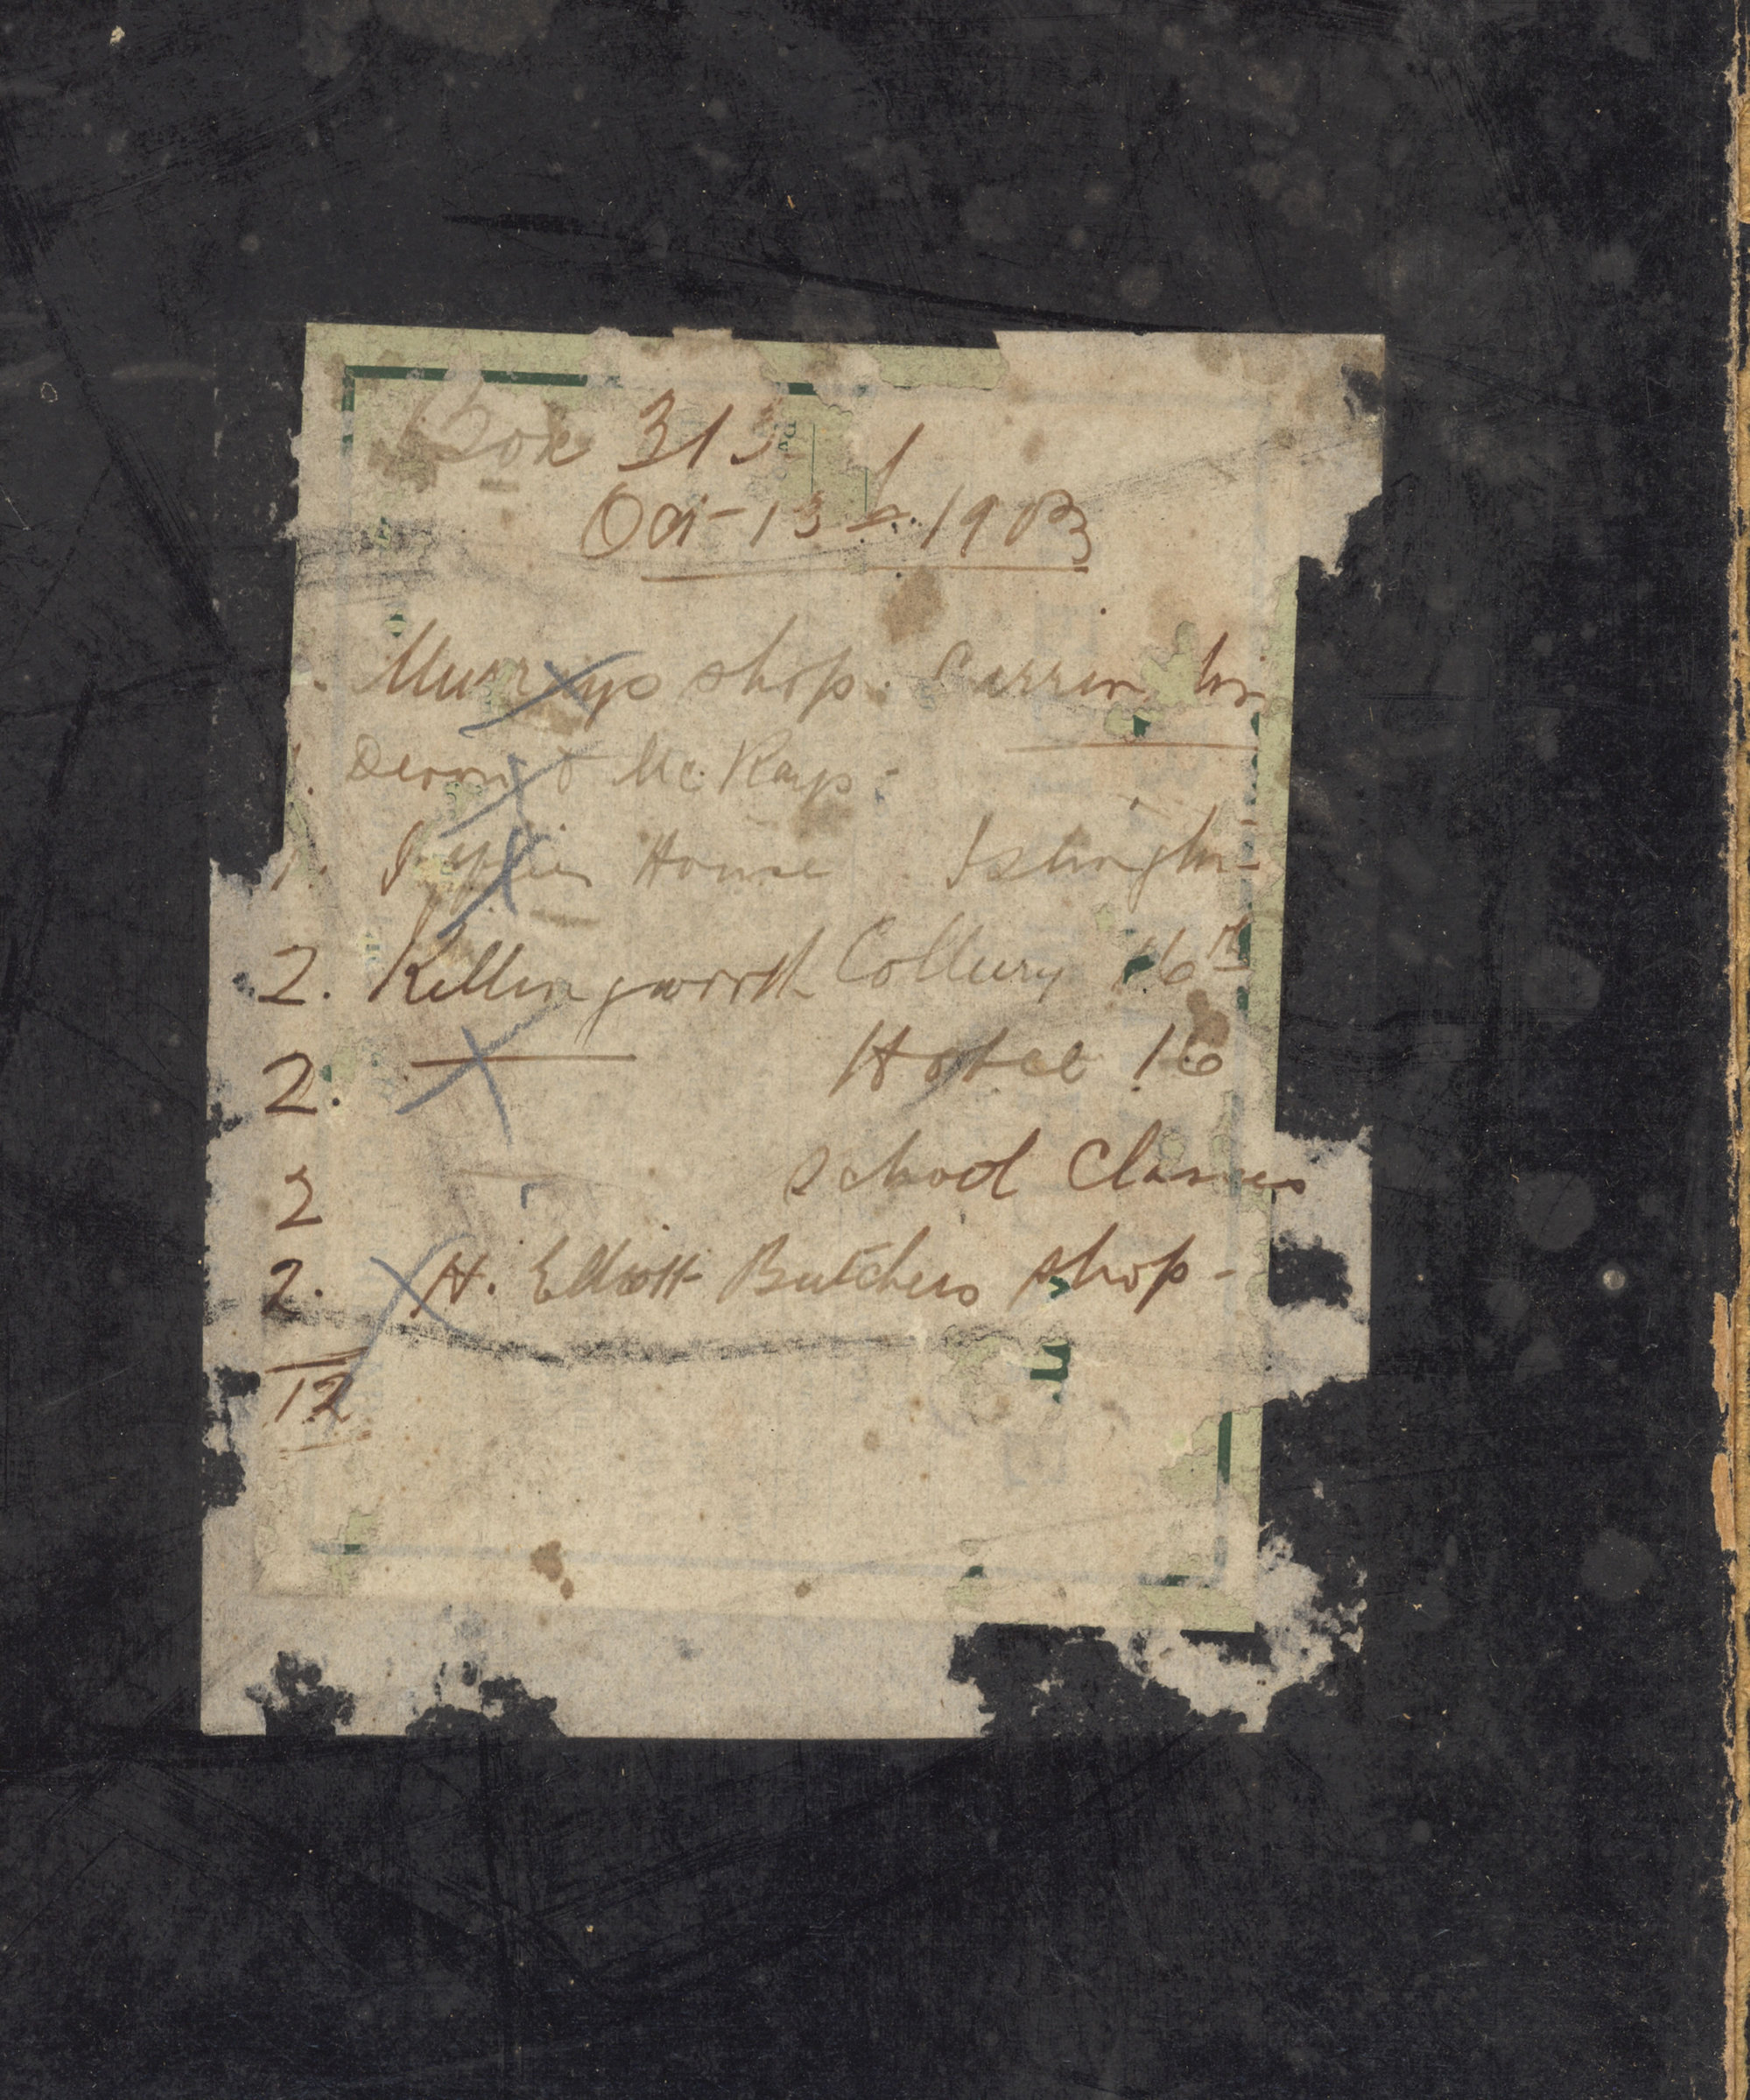 Box 313
Oct-13th 1903
1. Murrays shop. Carrington
1. Denny & McKays-
1. House Islington-
2. Killingworth Colliery 16th
2. Hotel 16
2 School Classes
2. H. Elliott Butchers shop-
12